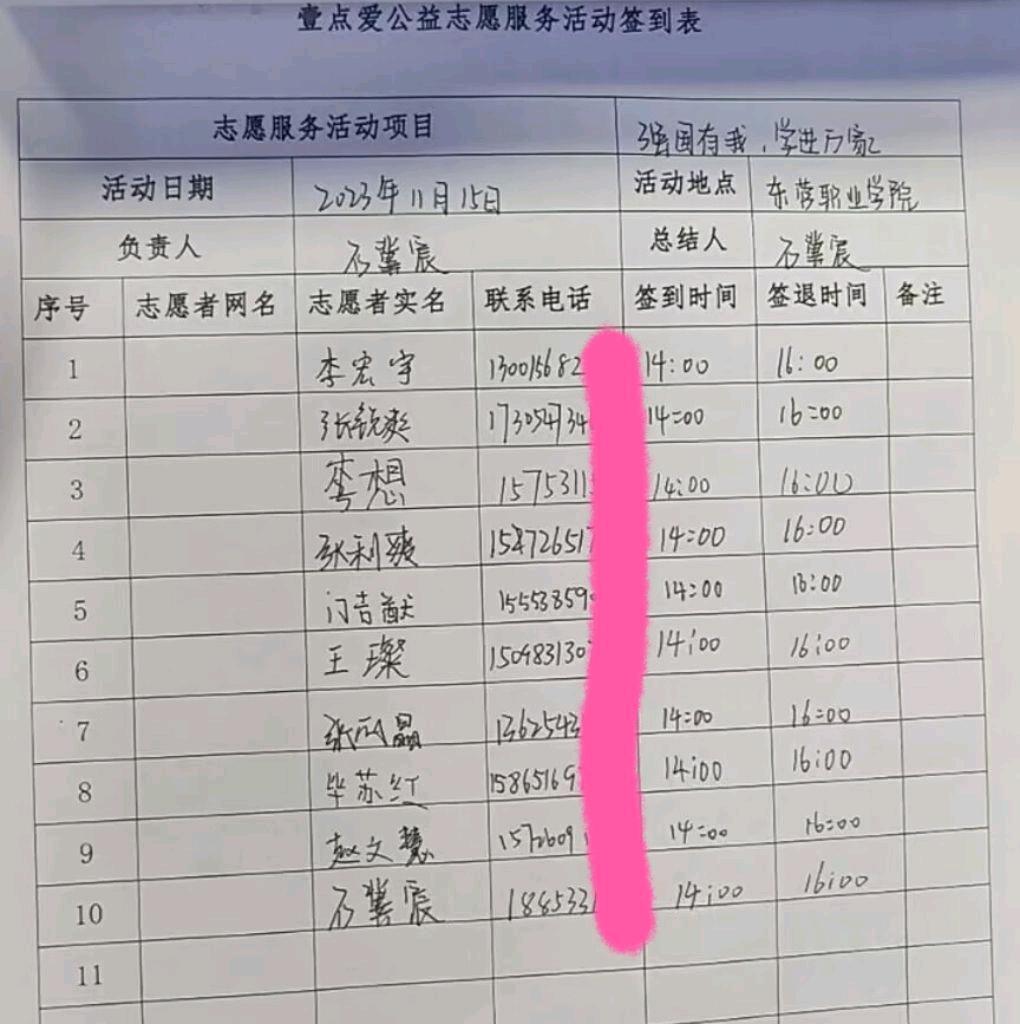 壹点爱公益志愿服务活动签到表
志愿服务活动项目 强国有我，学进万家
活动日期 2023年11月15日 活动地点 东营职业学院
负责人 石冀宸 总结人 石冀宸
序号 志愿者网名 志愿者实名 联系电话 签到时间 签退时间 备注
1 李宏宇 130015682 14:00 16:00
2 张锐彪 173054734 14:00 16:00
3 李想 15753115 14:00 16:00
4 张利爽 158726517 14:00 16:00
5 门吉猷 15553859 14:00 16:00
6 王璨 150983130 14:00 16:00
7 张雨晶 1362543 14:00 16:00
8 毕苏红 15865169 14:00 16:00
9 赵文慧 1572609 14:00 16:00
10 石冀宸 1885331 14:00 16:00
11